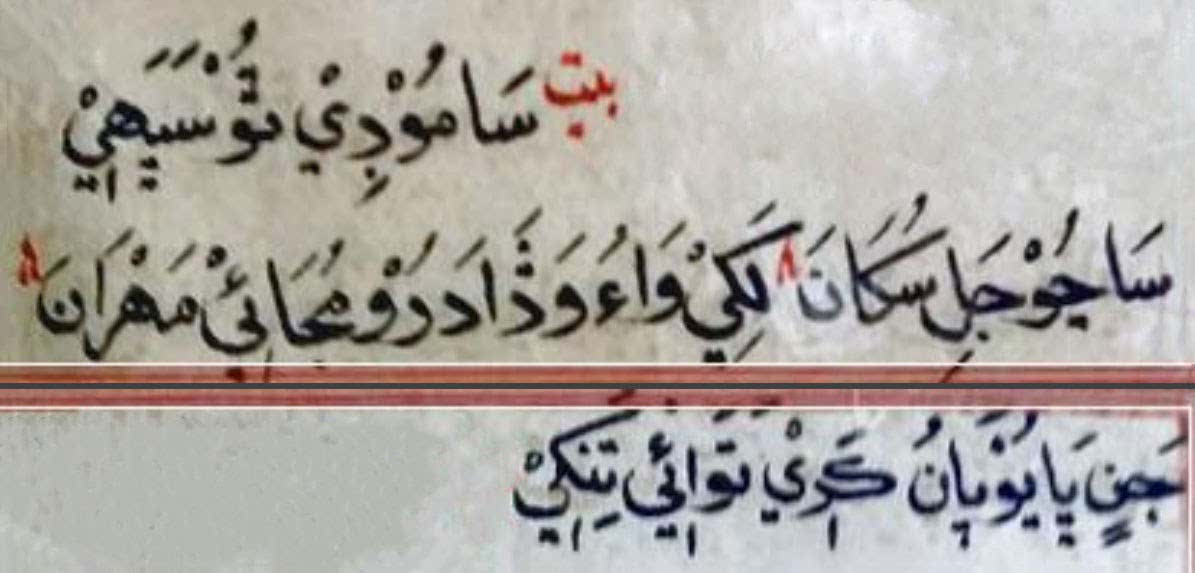 بيت سَامُوْدِيْ تُوْسَيَهِيْ
سَاجُوْجَلِ سُکَانَ ۸ لَکِيْ وَاءُ وَڎَا دَرُوْمُجَائِيْ مَهْرَانَ ۸
جَنِ پَايُوْنپَانُ کَرِيْ تَوَائِيْ تِنَکِيْ